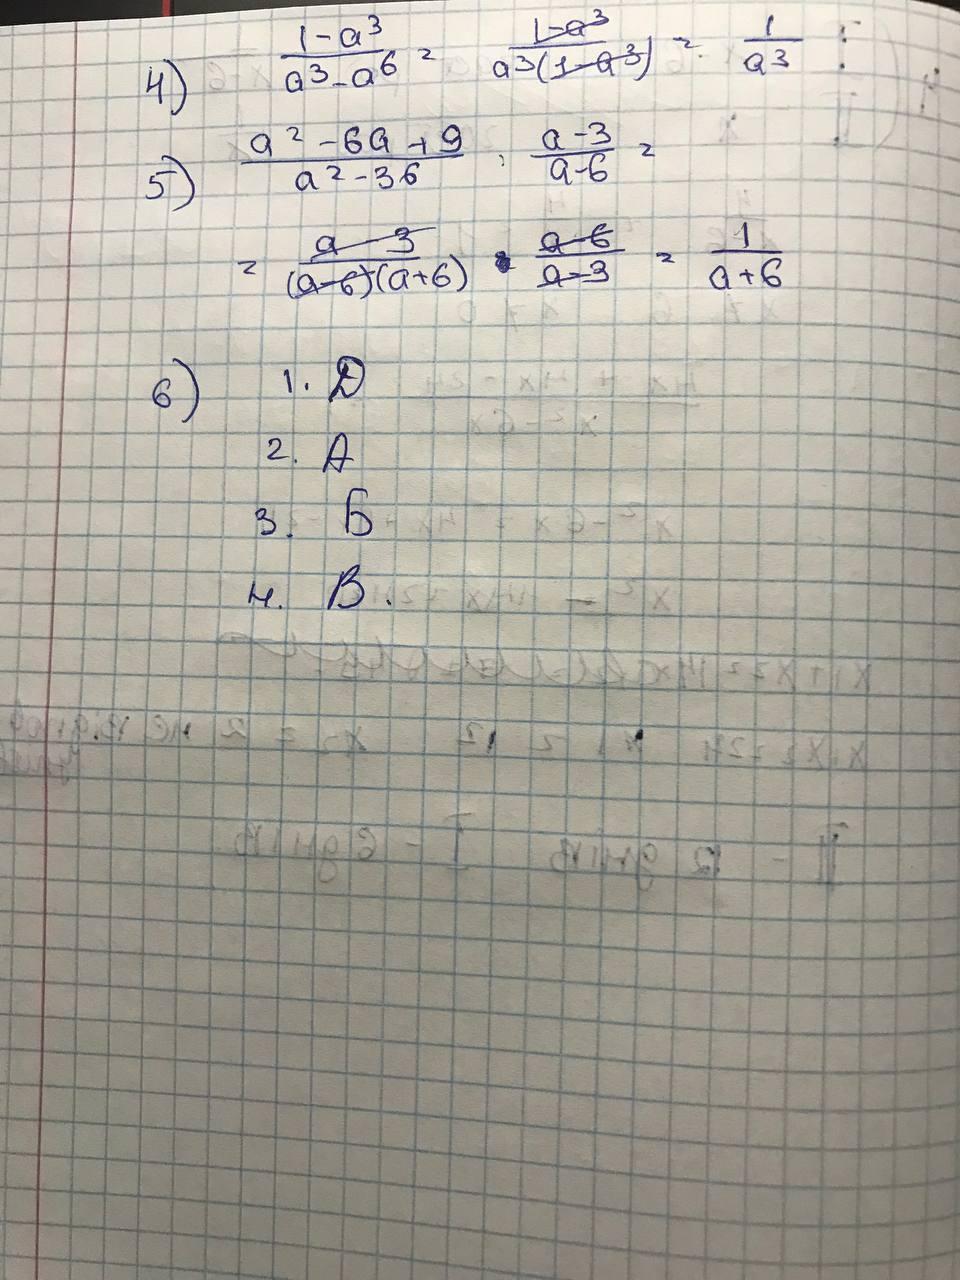 4) (1-a³)/(a³-a⁶) = (1-a³)/(a³(1-a³)) = 1/a³
5) (a²-6a+9)/(a²-36) : (a-3)/(a-6) =
= (a-3)/((a-6)(a+6)) · (a-6)/(a-3) = 1/(a+6)
6) 1. Д
2. А
3. Б
4. В.